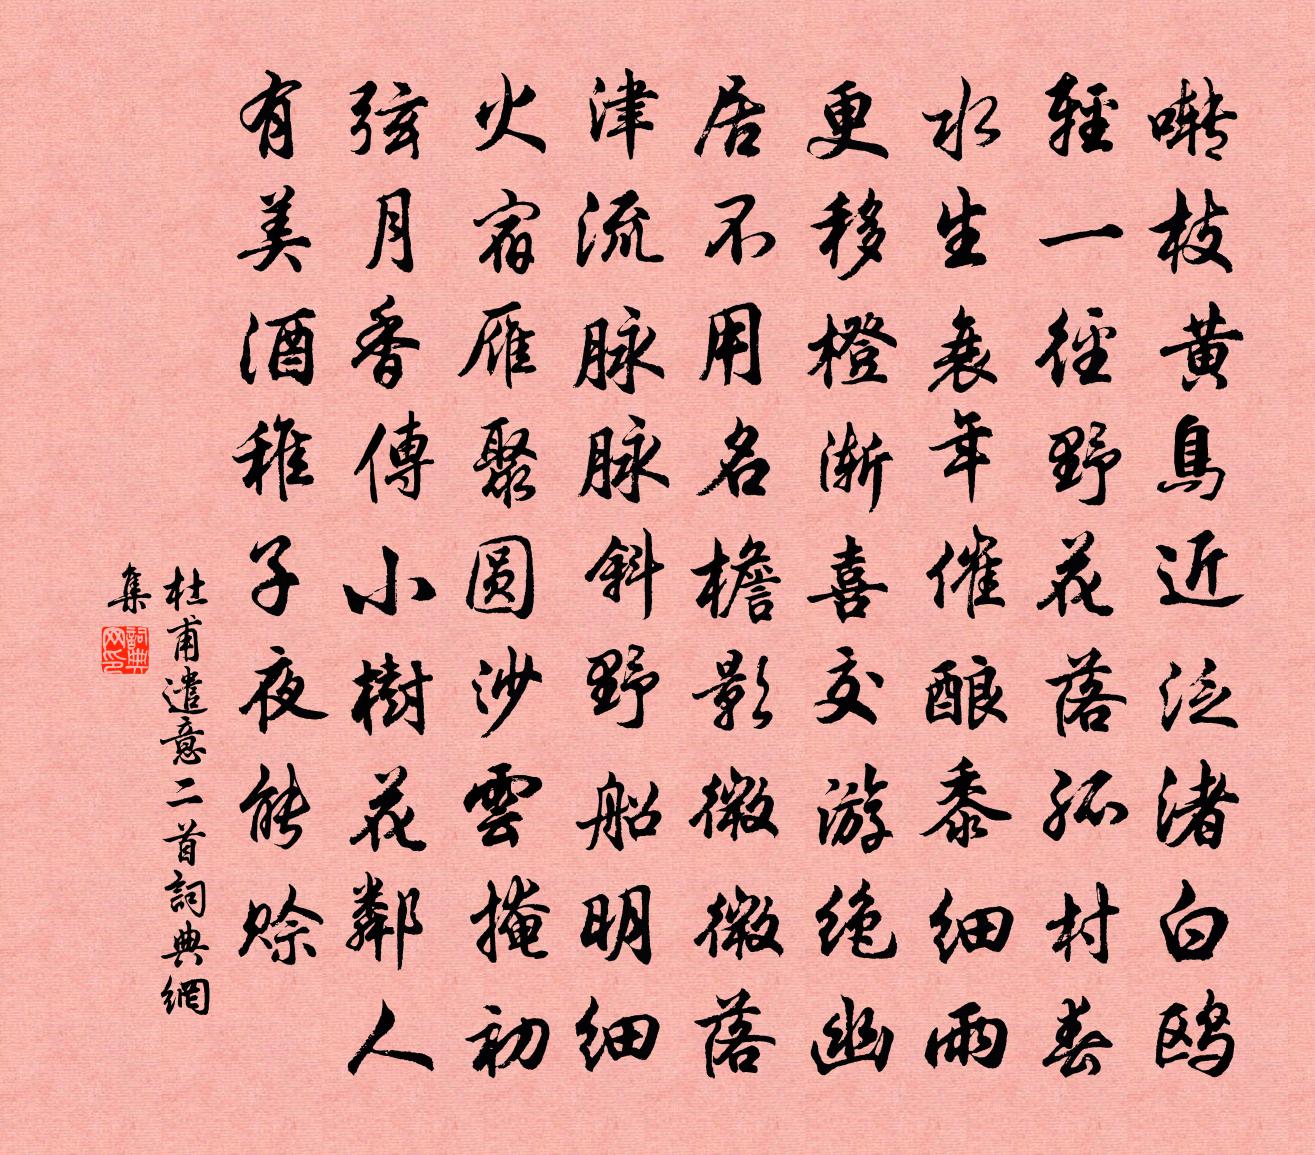 啭枝黄鳥近泛渚白鸥
輕一徑野花落孤村春
水生衰年催酿黍細雨
更移橙漸喜交游绝幽
居不用名檐影微微落
津流脉脉斜野船明細
火宿雁聚圆沙雲掩初
弦月香傳小樹花鄰人
有美酒稚子夜能赊
杜甫遣意二首詞典網
集
詞典
网印